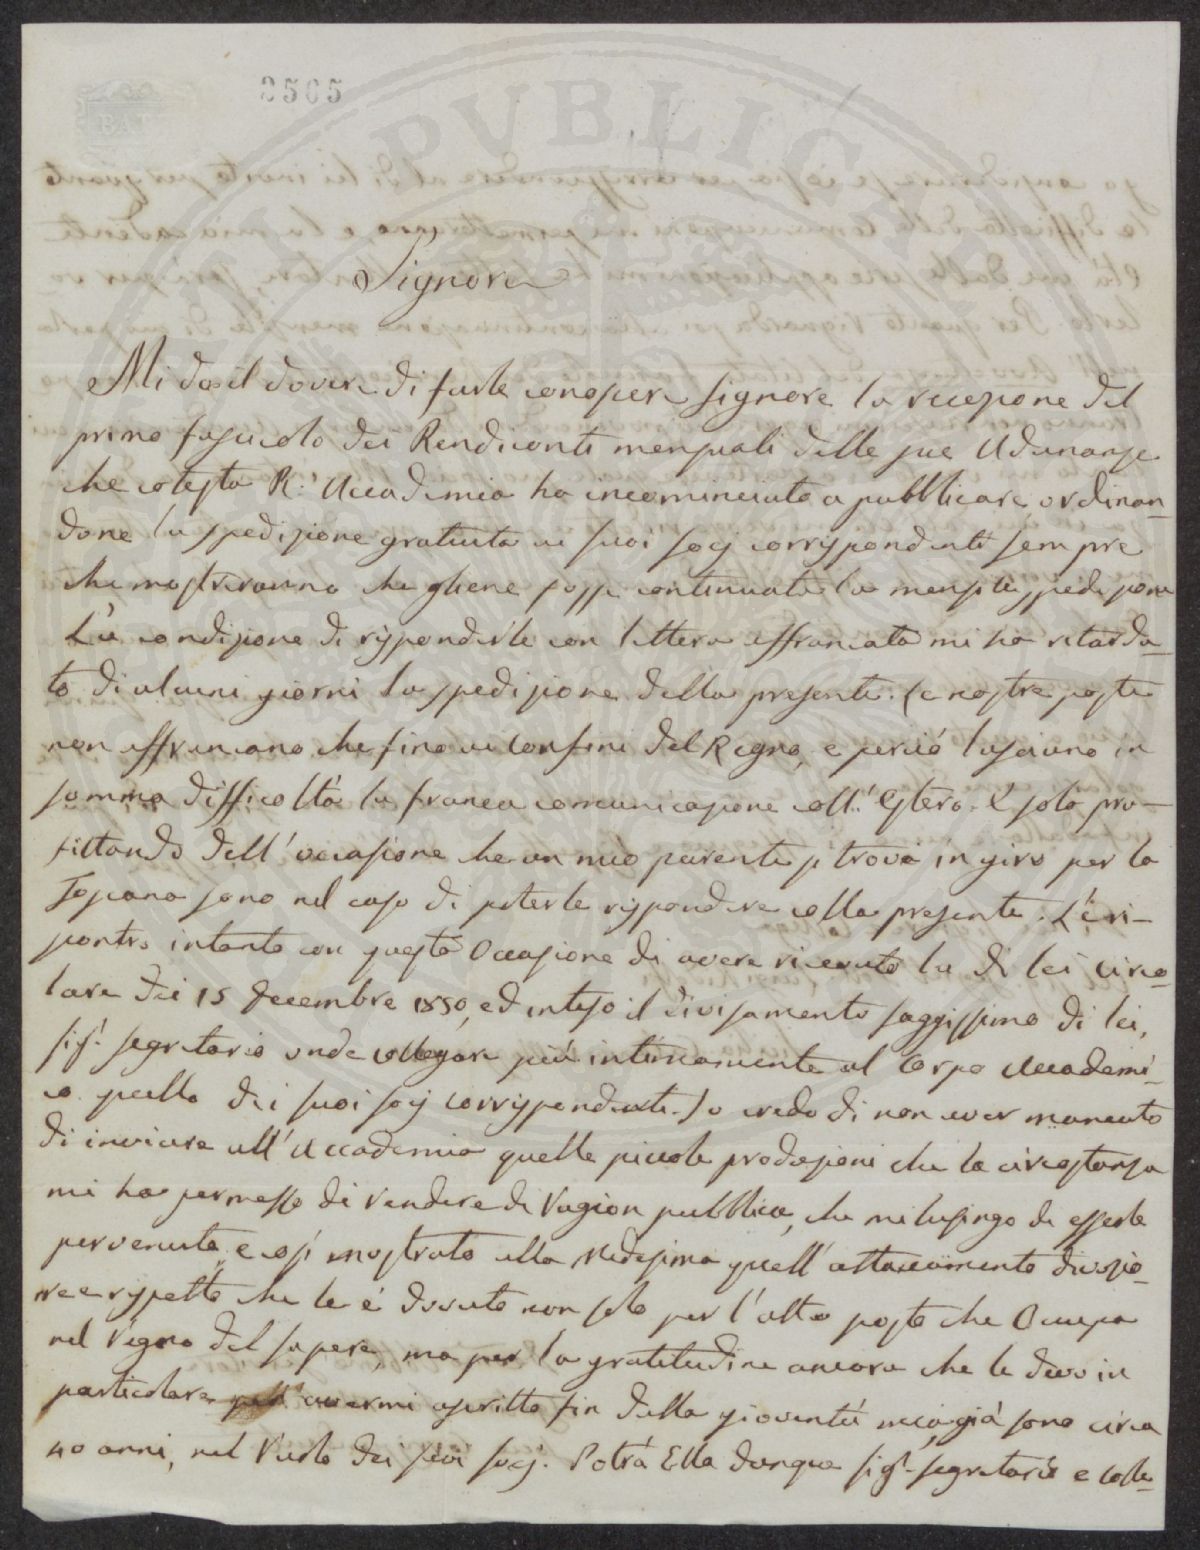 3505
BAT
PVBLICA
Signore
Mi dò il dovere di farle conoscere Signore la recezione del
primo fascicolo dei Rendiconti mensuali delle sue Adunanze
che cotesta R: Accademia ha incominciato a pubblicare ordinan-
done la spedizione gratuita ai suoi socj corrispondenti sempre
che mostreranno che gliene fosse continuata la mensile spedizione
La condizione di rispondere con lettera affrancata mi ha ritarda-
to di alcuni giorni la spedizione della presente. Le nostre poste
non affrancano che fino ai confini del Regno, e perciò lasciano in
somma difficoltà la franca comunicazione coll'Estero. È solo pro-
fittando dell'occasione che un mio parente si trova in giro per la
Toscana sono nel caso di poterle rispondere colla presente. Le ri-
scontro intanto con questa Occasione di avere ricevuto la di lei circo-
lare dei 15 Decembre 1850, ed inteso il divisamento saggissimo di lei,
sigr. segretario onde collegare più intimamente al Corpo Accademi-
co quello dei suoi socj corrispondenti. Io credo di non aver mancato
di inviare all'Accademia quelle piccole produzioni che la circostanza
mi ha permesso di rendere di ragion pubblica, che mi lusingo di esserle
pervenute, e così mostrato alla medesima quell'attaccamento devozio-
ne e rispetto che le è dovuto non solo per l'alto posto che Occupa
nel regno del sapere, ma per la gratitudine ancora che le devo in
particolare per avermi ascritto fin dalla gioventù mia, già sono circa
40 anni, nel ruolo dei suoi socj. Potrà Ella dunque sigr. segretario e colle-